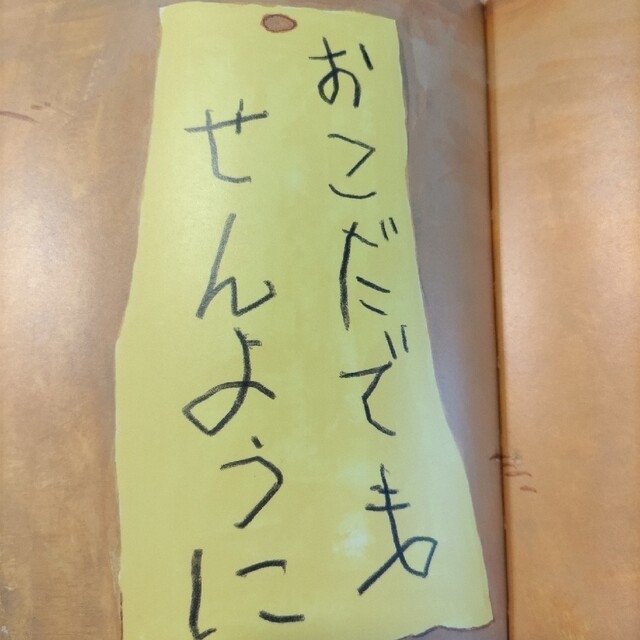 おこだでま
せんように